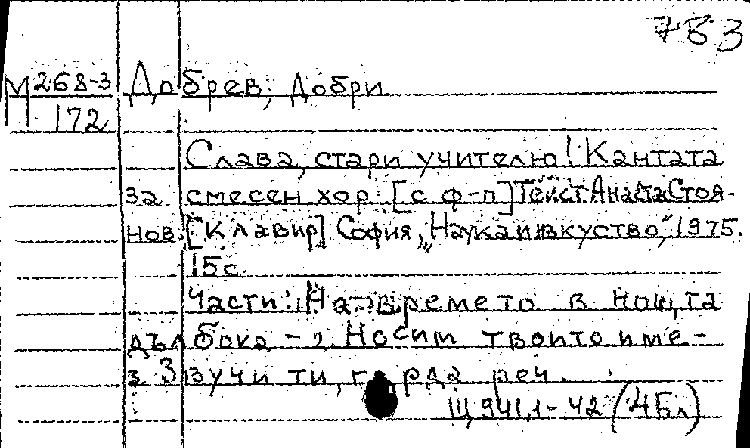 783
М 268-3 Добрев, Добри
172
Слава, стари учителю! Кантата
за смесен хор. [с ф-п] Текст Анаста Стоя-
нов. [Клавир] София, „Наука и изкуство", 1975.
15 с.
Части: На времето в нощта
дълбока -, Носим твоите име-
з 3вучи ти, горда реч.
III, 941, 1-42 (4 бл)